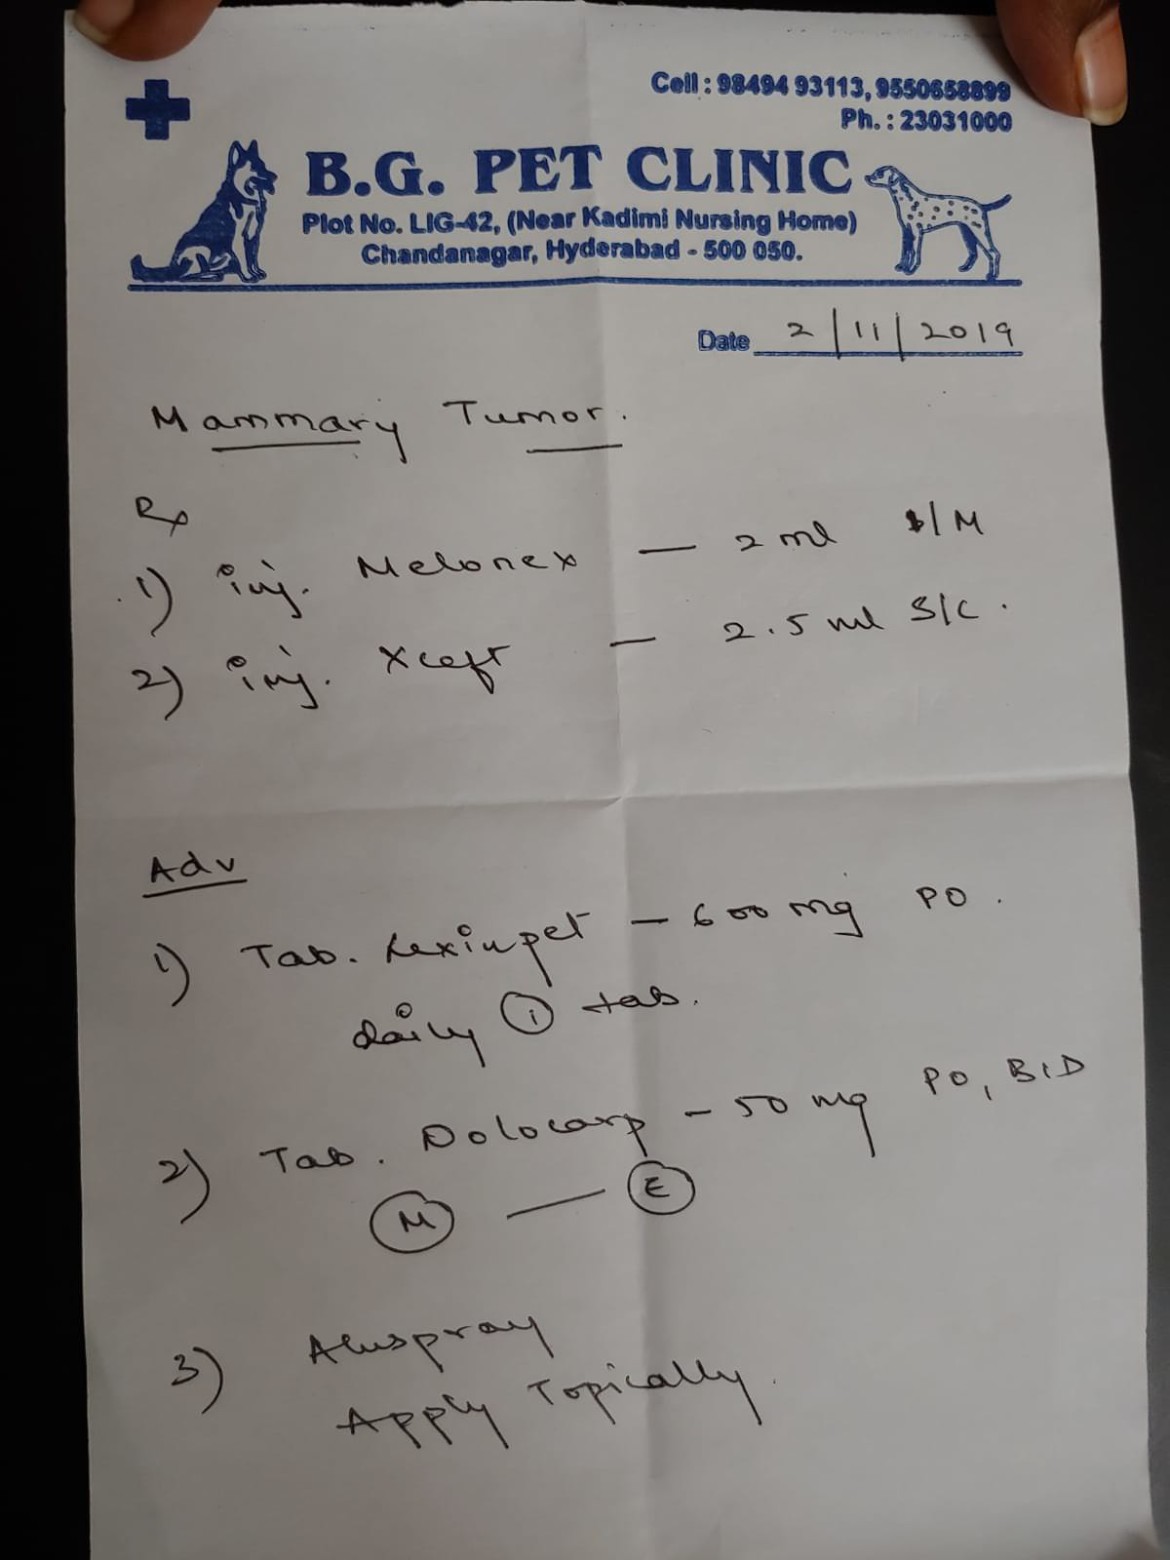 Cell : 98494 93113, 9550658899
Ph. : 23031000
B.G. PET CLINIC
Plot No. LIG-42, (Near Kadimi Nursing Home)
Chandanagar, Hyderabad - 500 050.
Date 2/11/2019
Mammary Tumor.
Rx
1) inj. Melonex — 2 ml I/M
2) inj. Xceft — 2.5 ml S/C.
Adv
1) Tab. Lexinpet — 600 mg PO.
daily ① tab.
2) Tab. Dolocarp - 50 mg PO, BID
Ⓜ — Ⓔ
3) Aluspray
Apply Topically.